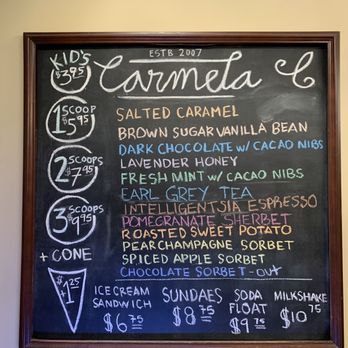 ESTB 2007
Carmela C
KID'S
$3.95
1 SCOOP
$5.95
2 SCOOPS
$7.95
3 SCOOPS
$9.95
+ CONE
+ $1.25
SALTED CARAMEL
BROWN SUGAR VANILLA BEAN
DARK CHOCOLATE w/ CACAO NIBS
LAVENDER HONEY
FRESH MINT w/ CACAO NIBS
EARL GREY TEA
INTELLIGENTSIA ESPRESSO
POMEGRANATE SHERBET
ROASTED SWEET POTATO
PEAR CHAMPAGNE SORBET
SPICED APPLE SORBET
CHOCOLATE SORBET-OUT
ICE CREAM
SANDWICH
$6.75
SUNDAES
$8.75
SODA
FLOAT
$9.75
MILKSHAKE
$10.75